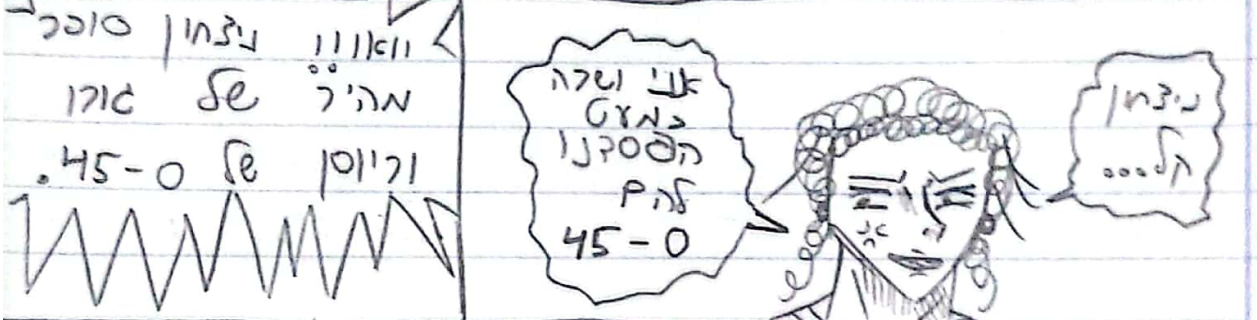 ניצחון
קל...
אני ושרה
כמעט
הפסדנו
להם
45-0
וואווו!!! ניצחון סופר-
מהיר של גורו
וריוסן של 45-0.